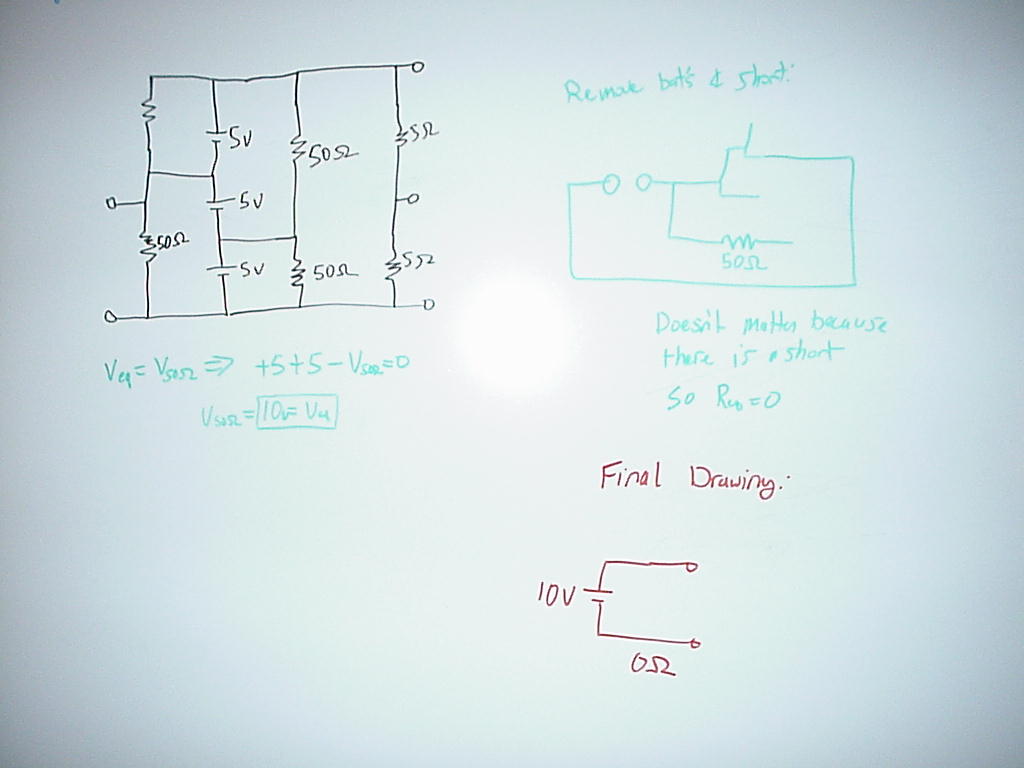 5V
50Ω
5Ω
5V
50Ω
5V
50Ω
5Ω
Veq = V50Ω ⇒ +5+5-V50Ω=0
V50Ω = 10v = Veq
Remove bat's & short:
50Ω
Doesn't matter because
there is a short
so Req = 0
Final Drawing:
10V
0Ω